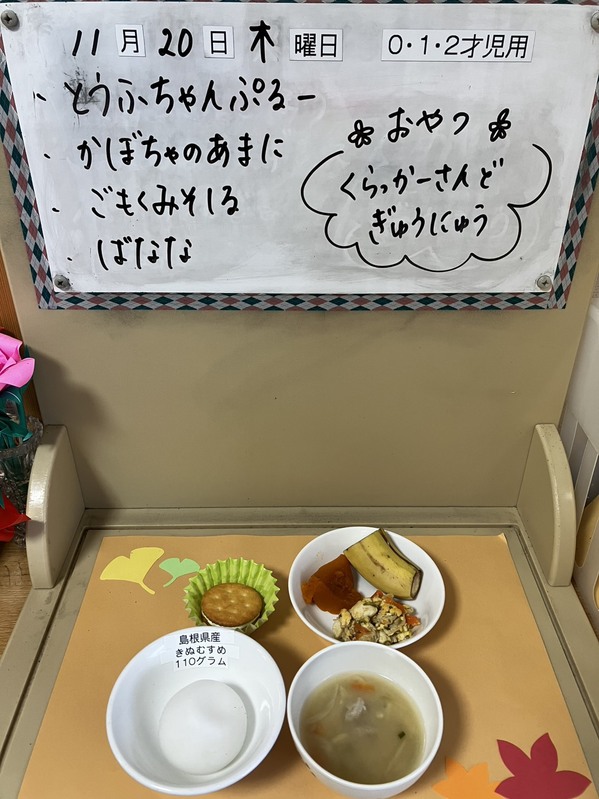 11月20日木曜日 0・1・2才児用
・とうふちゃんぷるー
・かぼちゃのあまに
・ごもくみそしる
・ばなな
おやつ
くらっかーさんど
ぎゅうにゅう
島根県産
きぬむすめ
110グラム